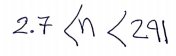 2.7 < n < 291